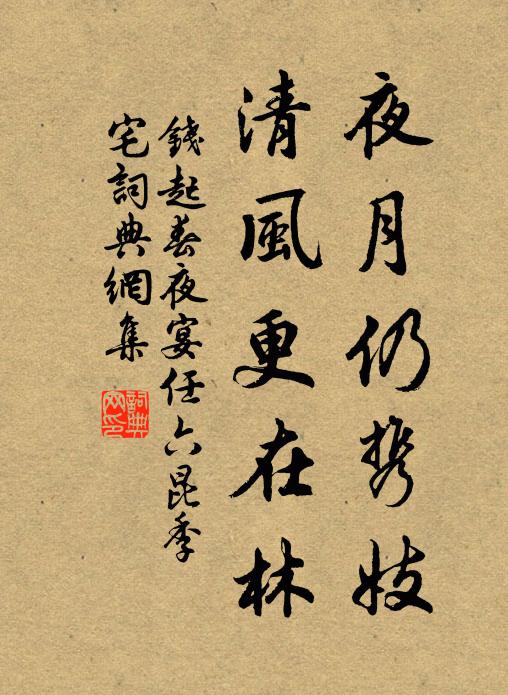 夜月仍携妓
清風更在林
錢起春夜宴任六昆季
宅詞典網集
詞典
网印